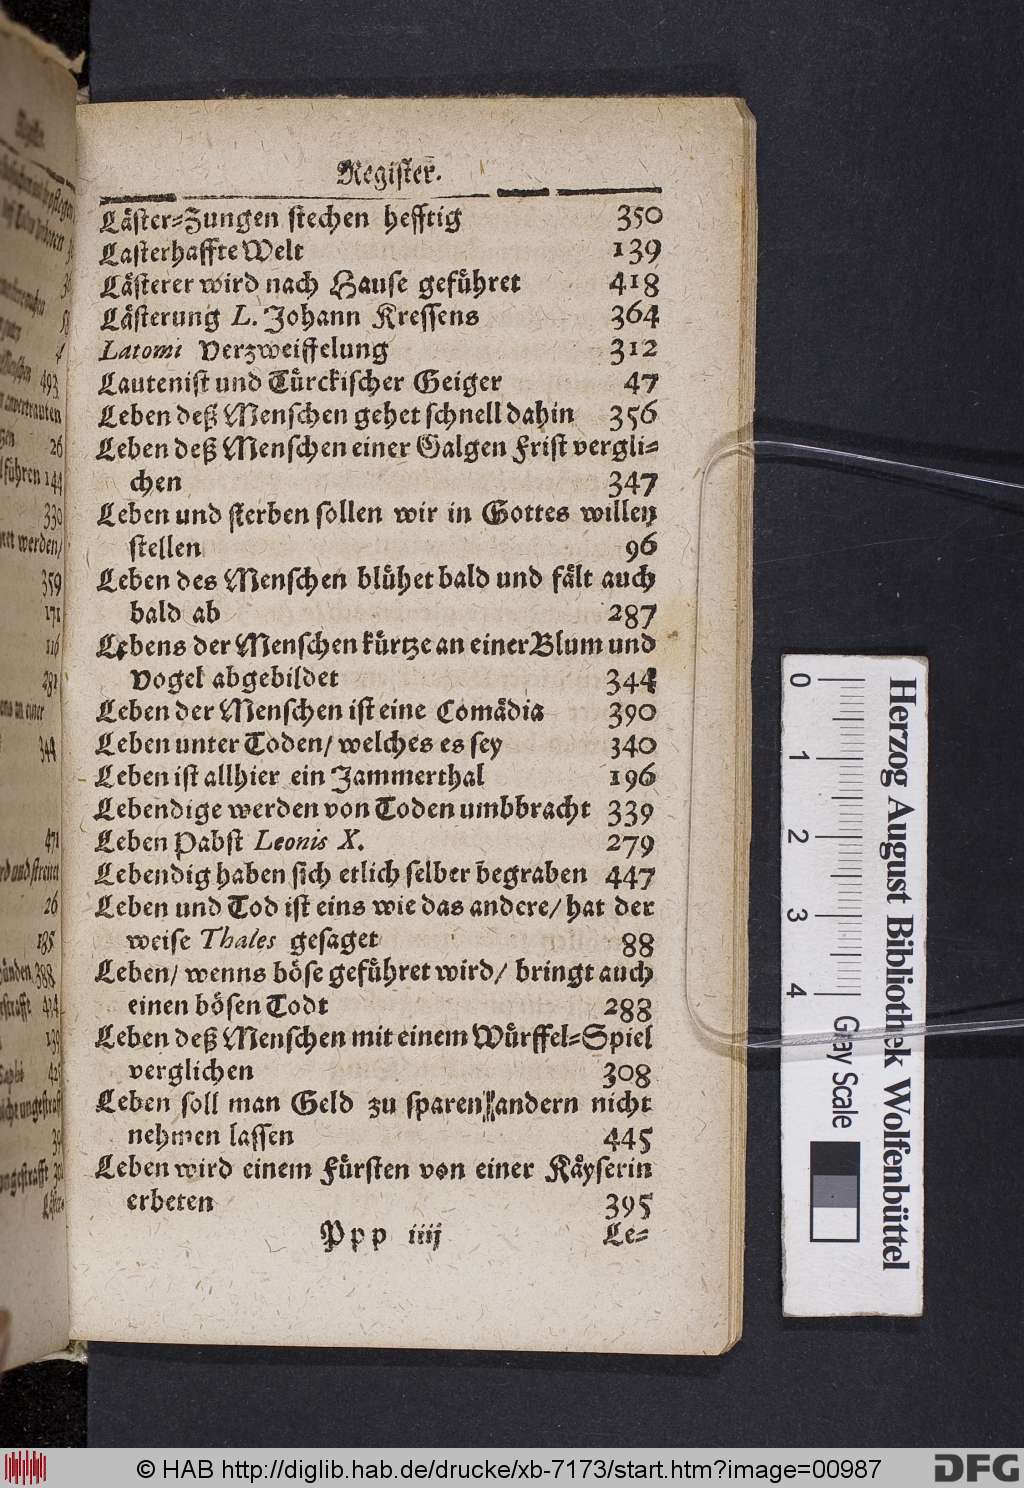 Register.
Läster-Zungen stechen hefftig 350
Lasterhaffte Welt 139
Lästerer wird nach Hause geführet 418
Lästerung L. Johann Kressens 364
Latomi Verzweiffelung 312
Lautenist und Türckischer Geiger 47
Leben deß Menschen gehet schnell dahin 356
Leben deß Menschen einer Galgen Frist vergli-
chen 347
Leben und sterben sollen wir in Gottes willen
stellen 96
Leben des Menschen blühet bald und fält auch
bald ab 287
Lebens der Menschen kürtze an einer Blum und
Vogel abgebildet 344
Leben der Menschen ist eine Comädia 390
Leben unter Toden/ welches es sey 340
Leben ist allhier ein Jammerthal 196
Lebendige werden von Toden umbbracht 339
Leben Pabst Leonis X. 279
Lebendig haben sich etlich selber begraben 447
Leben und Tod ist eins wie das andere/ hat der
weise Thales gesaget 88
Leben/ wenns böse geführet wird/ bringt auch
einen bösen Todt 288
Leben deß Menschen mit einem Würffel-Spiel
verglichen 308
Leben soll man Geld zu sparen andern nicht
nehmen lassen 445
Leben wird einem Fürsten von einer Käyserin
erbeten 395
Ppp iiij Le-
493
26
führen 144
330
werden/
359
171
116
281
344
471
26
185
388
414
139
0 1 2 3 4
Gray Scale
Herzog August Bibliothek Wolfenbüttel
© HAB http://diglib.hab.de/drucke/xb-7173/start.htm?image=00987
DFG